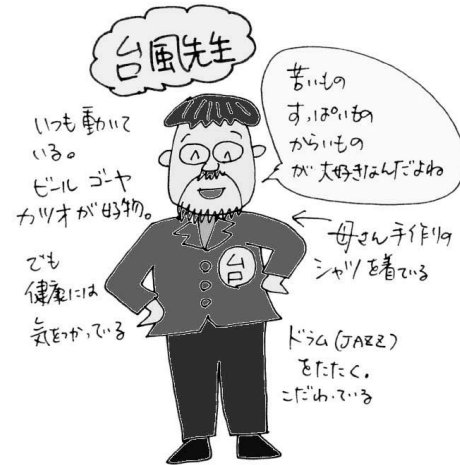 台風先生
苦いもの
すっぱいもの
からいもの
が大好きなんだよね
いつも動いて
いる。
ビール ゴーヤ
カツオが好物。
でも
健康には
気をつかっている
母さん手作りの
シャツを着ている
台
ドラム(JAZZ)
をたたく。
こだわっている